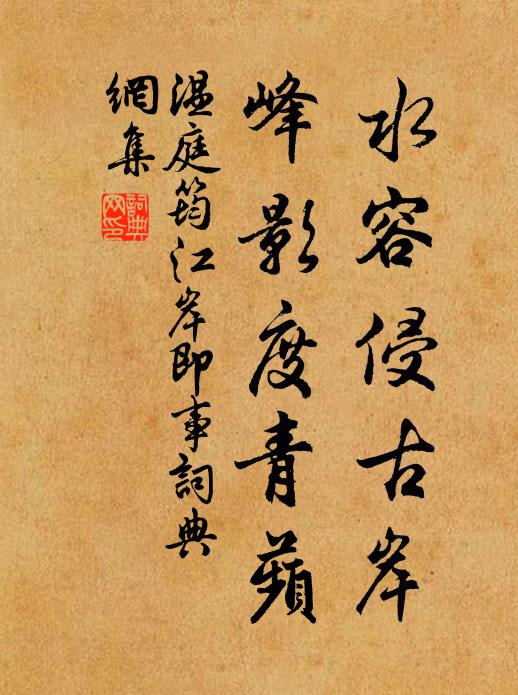 水容侵古岸
峰影度青蘋
温庭筠江岸即事詞典
網集
詞典
网印